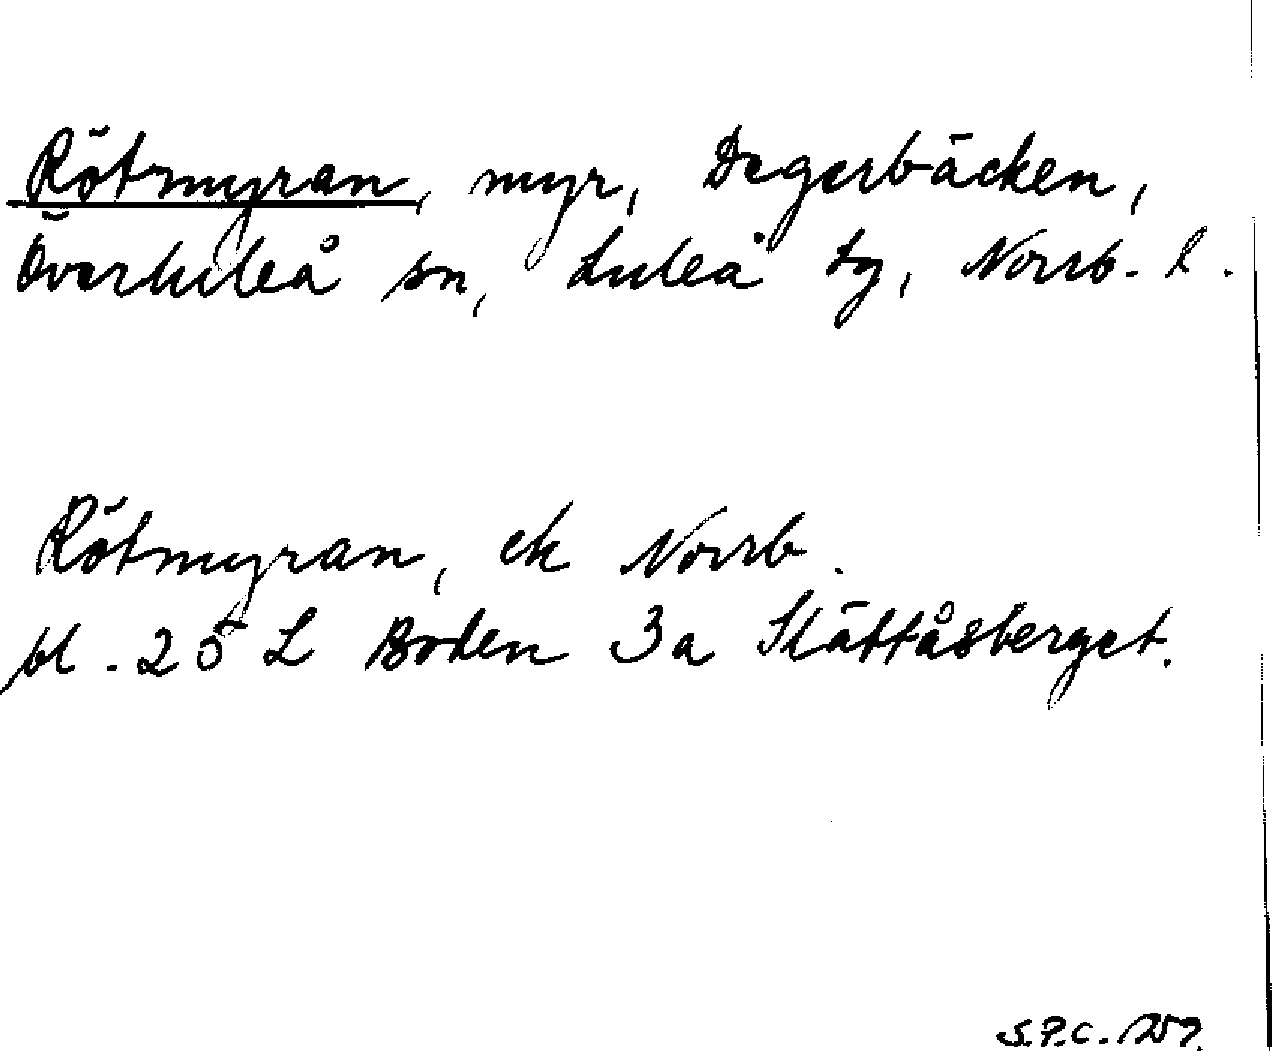 Rötmyran, myr, Degerbäcken,
Överluleå sn, Luleå tg, Norrb. l.
Rötmyran, ek Norrb.
bl. 25 L Boden 3a Slättåsberget.
S.P.C.